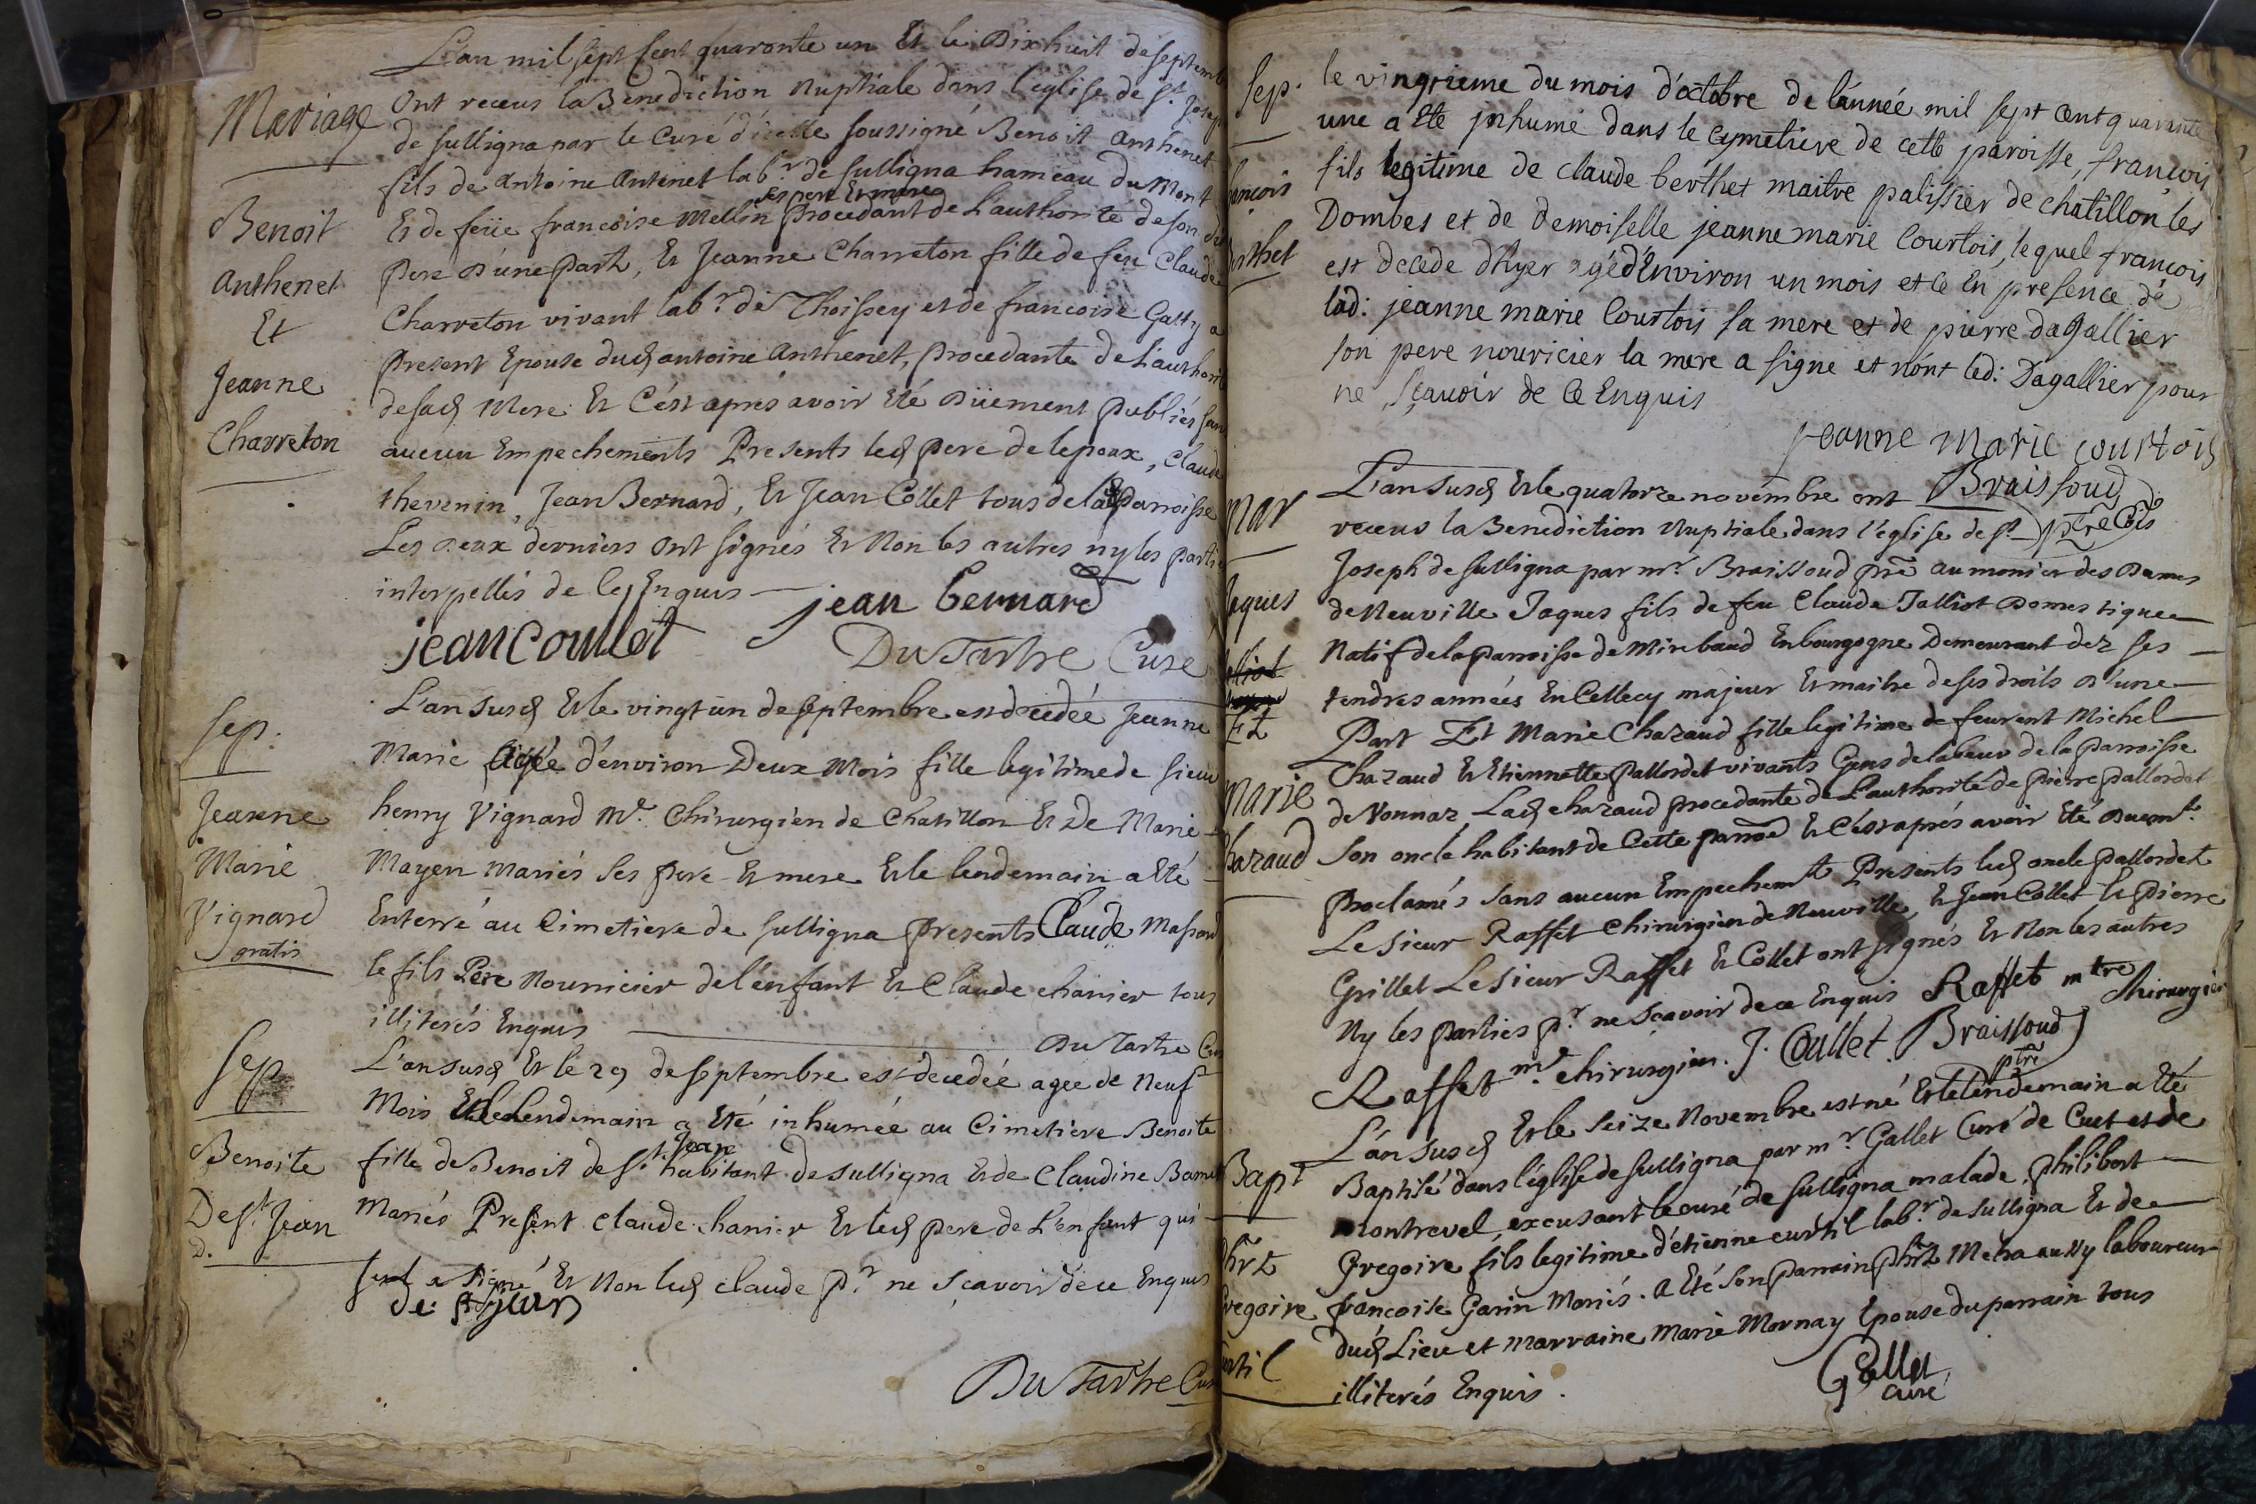 Mariage
Benoit
Anthenet
Et
Jeanne
Charreton
L'an mil sept cent quaronte un Et le Dixhuit de septemb
Ont receus la Benediction Nuptiale dans l'eglise de St Josep
de sulligna par le Curé d'icelle soussigné Benoit Anthenet
fils de Antoine Antenet labr. de sulligna hameau du Mont
Et de feüe francoise Mellin procedant de L'authorité de son
ses pere Et mere
pere D'une part, Et Jeanne Charreton fille de feu Claude
Charreton vivant labr. de Thoissey et de francoise Gatty a
present Epouse dud antoine Anthenet, procedante de L'authorit
de sad Mere. Et C'est aprés avoir Eté Düement publiés san
aucun Empechements Presents led pere de lepoux, Claude
thevenin, Jean Bernard, Et Jean Collet tous de lad parroisse
Les deux derniers ont signés Et Non les autres ny les parti
interpellés de ce Enquis
jean bernard
jean coullet
Du Tartre Curé
Sep.
Jeanne
Marie
Vignard
gratis
L'an susd Et le vingt un de septembre est decedée Jeanne
Marie agée d'environ Deux Mois fille legitime de sieur
henry Vignard Me. Chirurgien de Chatillon Et De Marie
Mayen Mariés ses pere Et mere Et le lendemain a Eté
Enterré au Cimetiere de sulligna presents Claude Massard
le fils Pere Nourricier de l'enfant Et Claude chanier tous
illiterés Enquis
Du Tartre Cur
Sep.
Benoite
De St. Jean
D.
L'an susd Et le 29 de septembre est decedée agee de Neuf
Mois Et le lendemain a Eté inhumée au Cimetiere Benoite
fille de Benoit de St. Jean habitant de sulligna Et de Claudine
Mariés Present Claude chanier Et led pere de L'enfant qui
seul a signé Et Non led claude pr. ne sçavoir de ce Enquis
de st jean
Du Tartre Cur
Sep.
ançois
erthet
le vingtieme du mois d'octobre de l'année mil sept cent quarante
une a ete jnhumé dans le cymetiere de cette paroisse, francois
fils legitime de claude berthet maitre patissier de chatillon les
Dombes et de demoiselle jeanne marie Courtois, lequel francois
est decede d'hyer agé d'Environ un mois et ce En presence de
lad: jeanne marie Courtois sa mere et de pierre dagallier
son pere nouricier la mere a signe et nont led: Dagallier pour
ne sçavoir de ce Enquis
jeanne marie courtois
Braissoud
ptre
Mar
Jaques
Et
Marie
Chazaud
L'an susd Et le quatorze novembre ont
receus la Benediction Nuptiale dans l'église de St.
Joseph de sulligna par mr. Braissoud pre aumonier des Dames
de Neuville Jaques fils de feu Claude Talliot Domestique
Natif de la parroisse de Mirebaud En bourgogne Demeurant dez ses
tendres années En Cellecy majeur Et maitre de ses droits D'une
Part Et Marie Chazaud fille legitime de feurent Michel
Chazaud Et Etiennette pallordet vivants Gens de labeur de la parroisse
de Vonnaz Lad chazaud procedante de L'authorité de pierre pallordet
son oncle habitant de Cette parroe Et C'est aprés avoir Eté Duemt.
Proclamés sans aucun Empechemt. Presents led oncle pallordet
Le sieur Raffet Chirurgien de Neuville, Et Jean Collet Et pierre
Grillet Le sieur Raffet Et Collet ont signés Et Non les autres
Ny les parties pr. ne sçavoir de ce Enquis Raffet mtre chirurgien
Raffet me. chirurgien. J. Coullet. Braissoud
ptre
Bapt
phrt
Gregoire
urtil
L'an susd Et le seize Novembre est né Et le lendemain a Eté
Baptisé dans l'église de sulligna par mr. Gallet Curé de Cuet et de
Montrevel, excusant le curé de sulligna malade, philibert
Gregoire fils legitime d'étienne curtil labr. de sulligna Et de
francoise Garin Mariés. a Eté son parrain phrt Metra laboureur
dud Lieu et marraine Marie Mornay Epouse du parrain tous
illiterés Enquis.
Gallet
curé